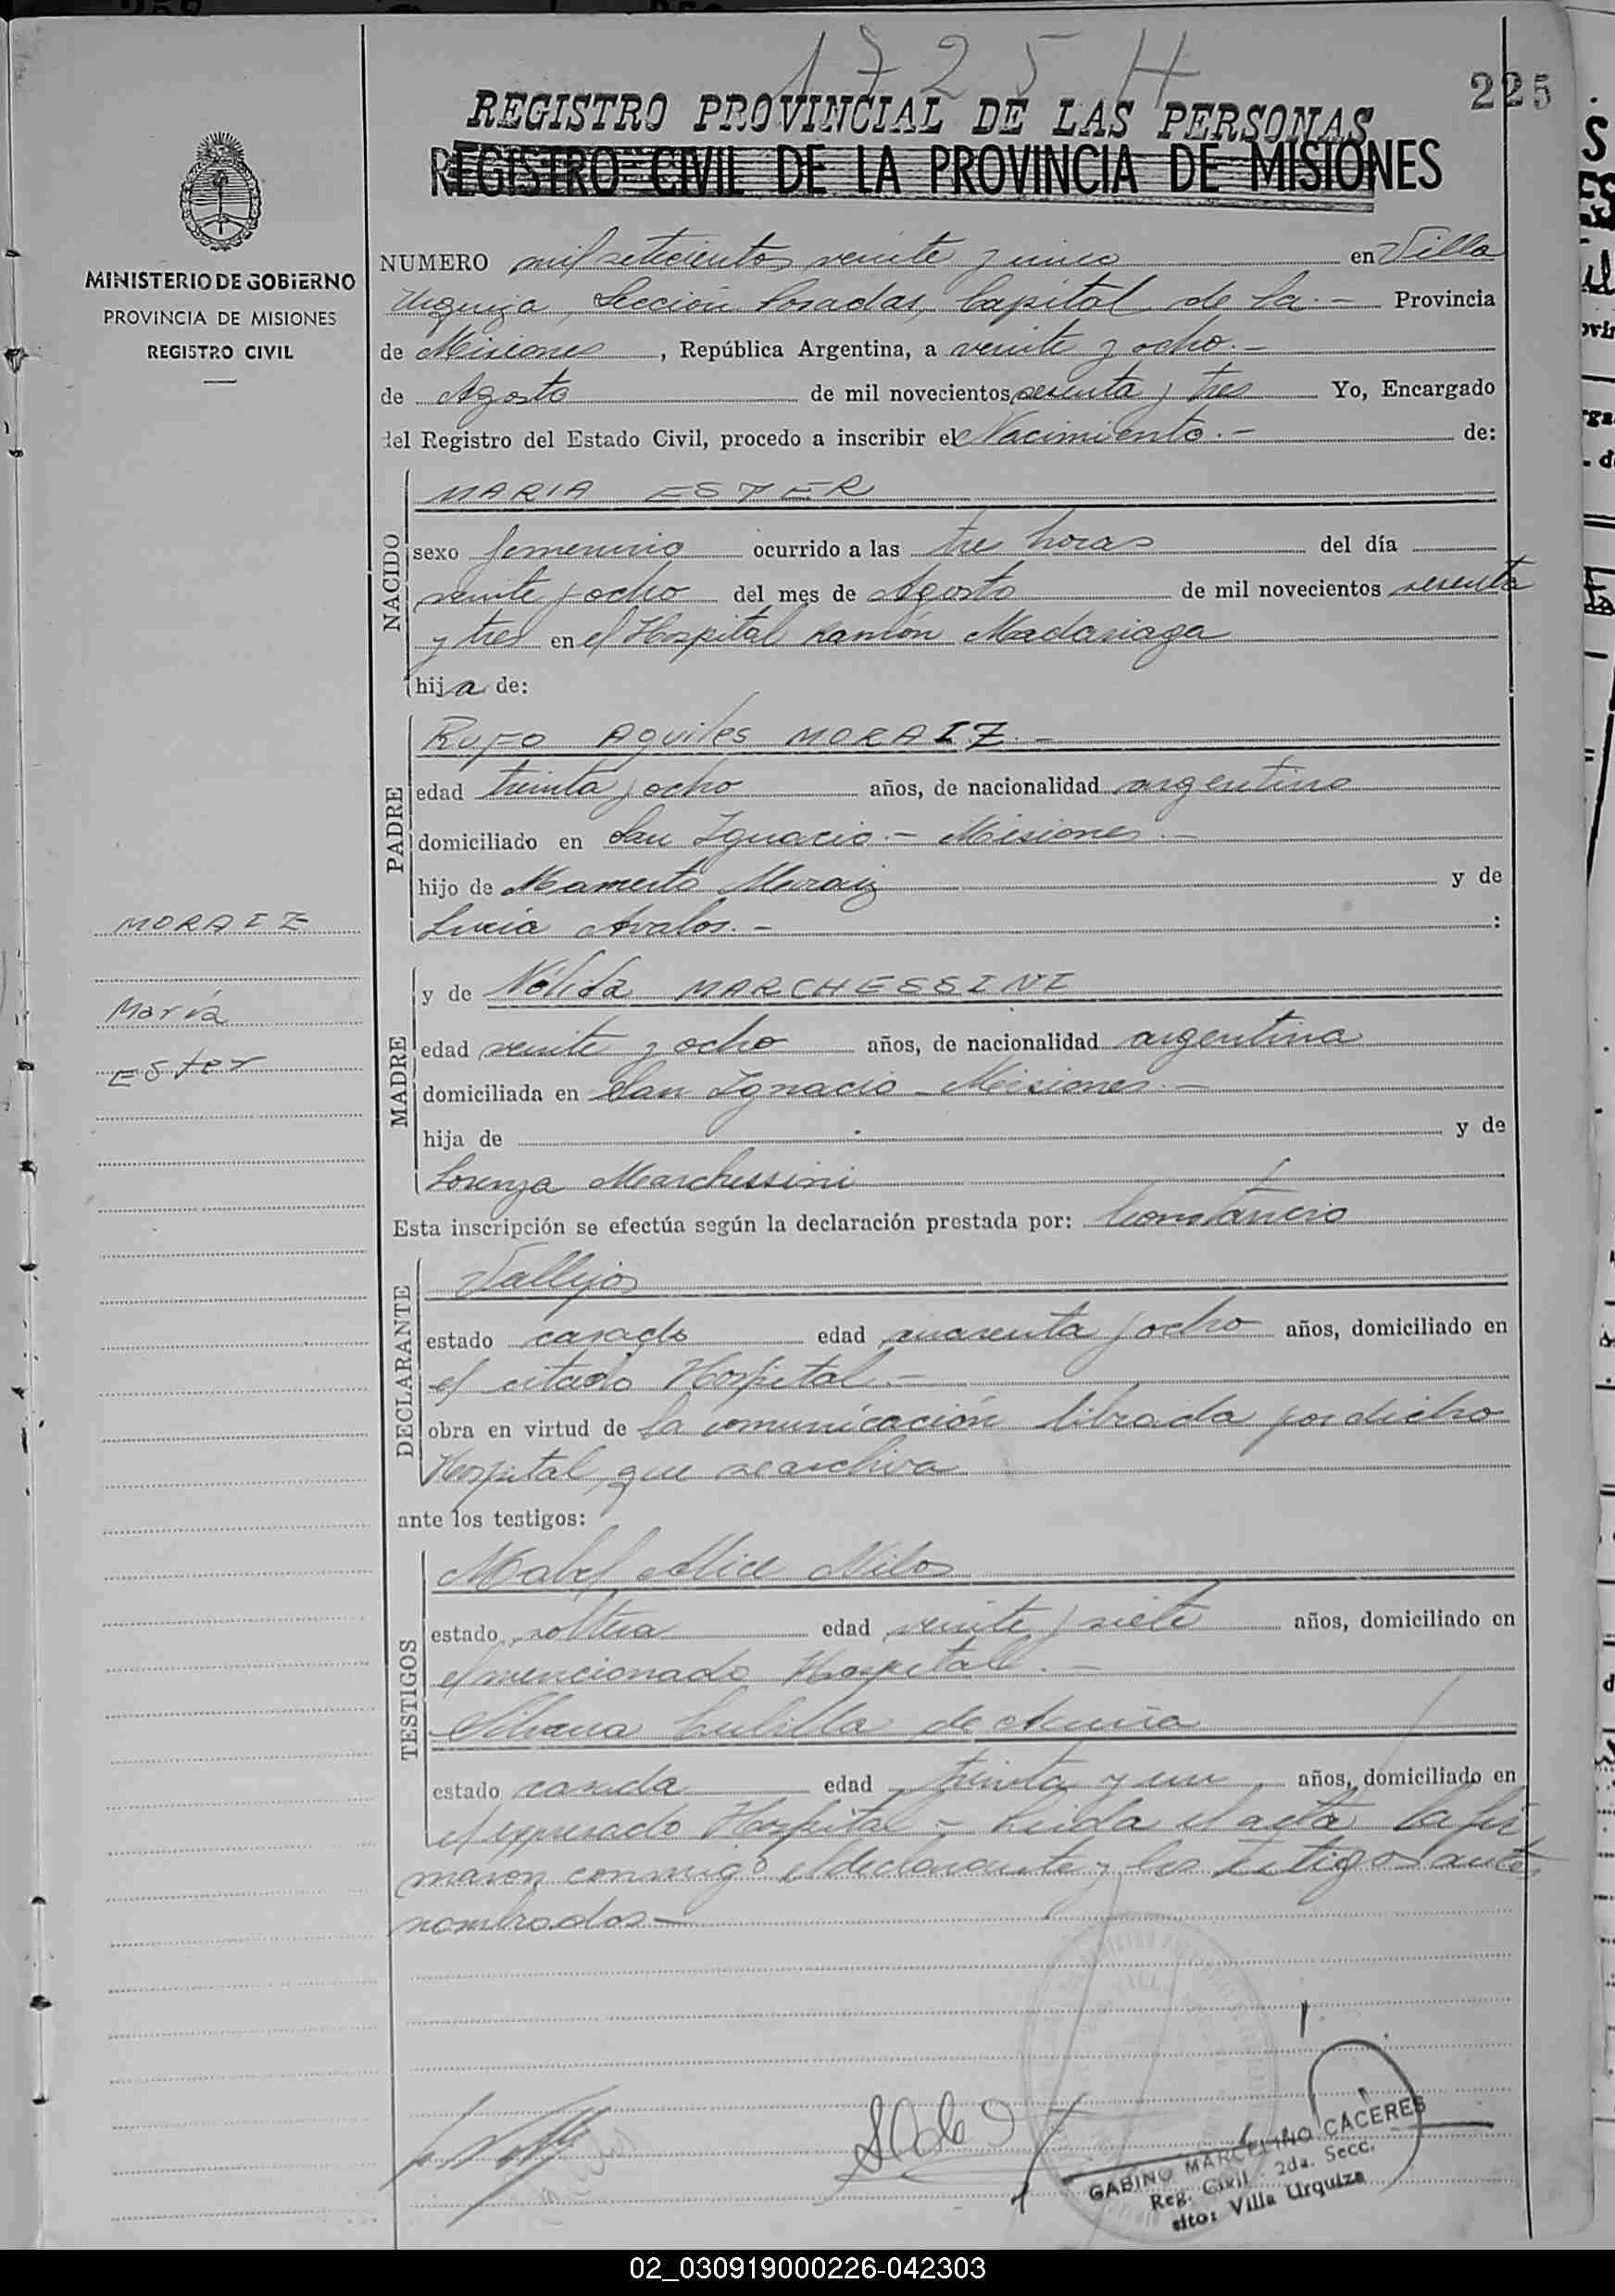 1725 H
225
REGISTRO PROVINCIAL DE LAS PERSONAS
REGISTRO CIVIL DE LA PROVINCIA DE MISIONES
MINISTERIO DE GOBIERNO
PROVINCIA DE MISIONES
REGISTRO CIVIL
NUMERO mil setecientos veinte y cinco en Villa
Urquiza, Sección Posadas, Capital de la.- Provincia
de Misiones, República Argentina, a veinte y ocho.-
de Agosto de mil novecientos sesenta y tres Yo, Encargado
del Registro del Estado Civil, procedo a inscribir el Nacimiento.- de:
NACIDO
MARIA ESTER
sexo femenino ocurrido a las tres horas del día
veinte y ocho del mes de Agosto de mil novecientos sesenta
y tres en el Hospital Ramón Madariaga
hija de:
PADRE
RUFO Aquiles MORAIZ.-
edad treinta y ocho años, de nacionalidad argentino
domiciliado en San Ignacio - Misiones.-
hijo de Mamerto Moraiz y de
Lucia Avalos.- :
MORAIZ
María
Ester
MADRE
y de Nélida MARCHESSINI
edad veinte y ocho años, de nacionalidad argentina
domiciliada en San Ignacio - Misiones.-
hija de y de
Lorenza Marchessini
Esta inscripción se efectúa según la declaración prestada por: Constancio
DECLARANTE
Vallejos
estado casado edad cuarenta y ocho años, domiciliado en
el citado Hospital.-
obra en virtud de la comunicación librada por dicho
Hospital, que se archiva
ante los testigos:
TESTIGOS
Mabel Alice
estado soltera edad veinte y siete años, domiciliado en
el mencionado Hospital.-
de
estado casada edad treinta y un años, domiciliado en
el expresado Hospital - Leida el acta la fir
maron conmigo el declarante y los testigos antes
nombrados-
GABINO MARCELINO CACERES
Reg. Civil 2da. Secc.
sito: Villa Urquiza
02_030919000226-042303